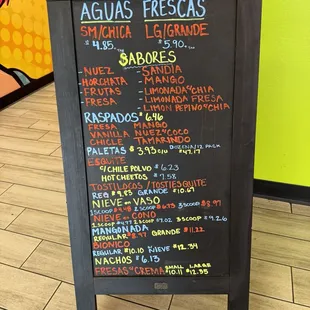 AGUAS FRESCAS
SM/CHICA LG/GRANDE
$4.85. $5.90.
SABORES
-NUEZ -SANDIA
-HORCHATA -MANGO
-FRUTAS -LIMONADA C/CHIA
-FRESA -LIMONADA FRESA
-LIMON PEPINO C/CHIA
RASPADOS $6.96
FRESA MANGO
VANILLA NUEZ C/COCO
CHICLE TAMARINDO
PALETAS $3.93 C/U DOZENA/12 PACK $47.17
ESQUITE
C/CHILE POLVO $6.23
HOT CHEETOS $7.58
TOSTILOCOS/TOSTIESQUITE
REG $9.83 GRANDE $10.67
NIEVE EN VASO
1 SCOOP $4.48 2 SCOOP $6.73 3 SCOOP $8.97
NIEVE EN CONO
1 SCOOP $4.77 2 SCOOP $7.02 3 SCOOP $9.26
MANGONADA
REGULAR $8.97 GRANDE $11.22
BIONICO
REGULAR $10.10 C/NIEVE $12.34
NACHOS $6.13
FRESAS C/CREMA SMALL $10.11 LARGE $12.35